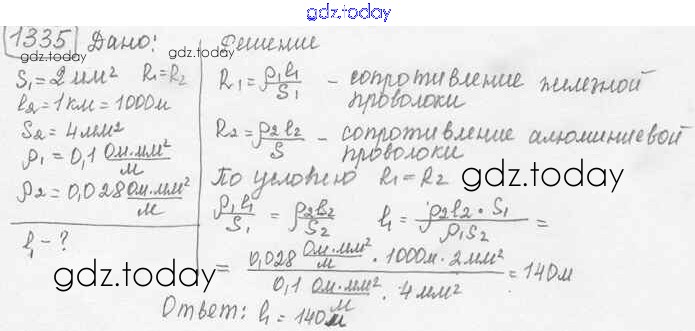 gdz.today
1335 Дано:
gdz.today
S₁ = 2 мм² R₁ = R₂
l₂ = 1 км = 1000 м
S₂ = 4 мм²
ρ₁ = 0,1 Ом·мм²/м
ρ₂ = 0,028 Ом·мм²/м
l₁ - ?
gdz.today
Решение
gdz.today
R₁ = ρ₁l₁/S₁ - сопротивление железной
проволоки
R₂ = ρ₂l₂/S - сопротивление алюминиевой
проволоки
По условию R₁ = R₂
gdz.today
ρ₁l₁/S₁ = ρ₂l₂/S₂ l₁ = ρ₂l₂·S₁/ρ₁S₂ =
= 0,028 Ом·мм²/м · 1000м · 2мм² / 0,1 Ом·мм²/м · 4мм² = 140м
Ответ: l₁ = 140м